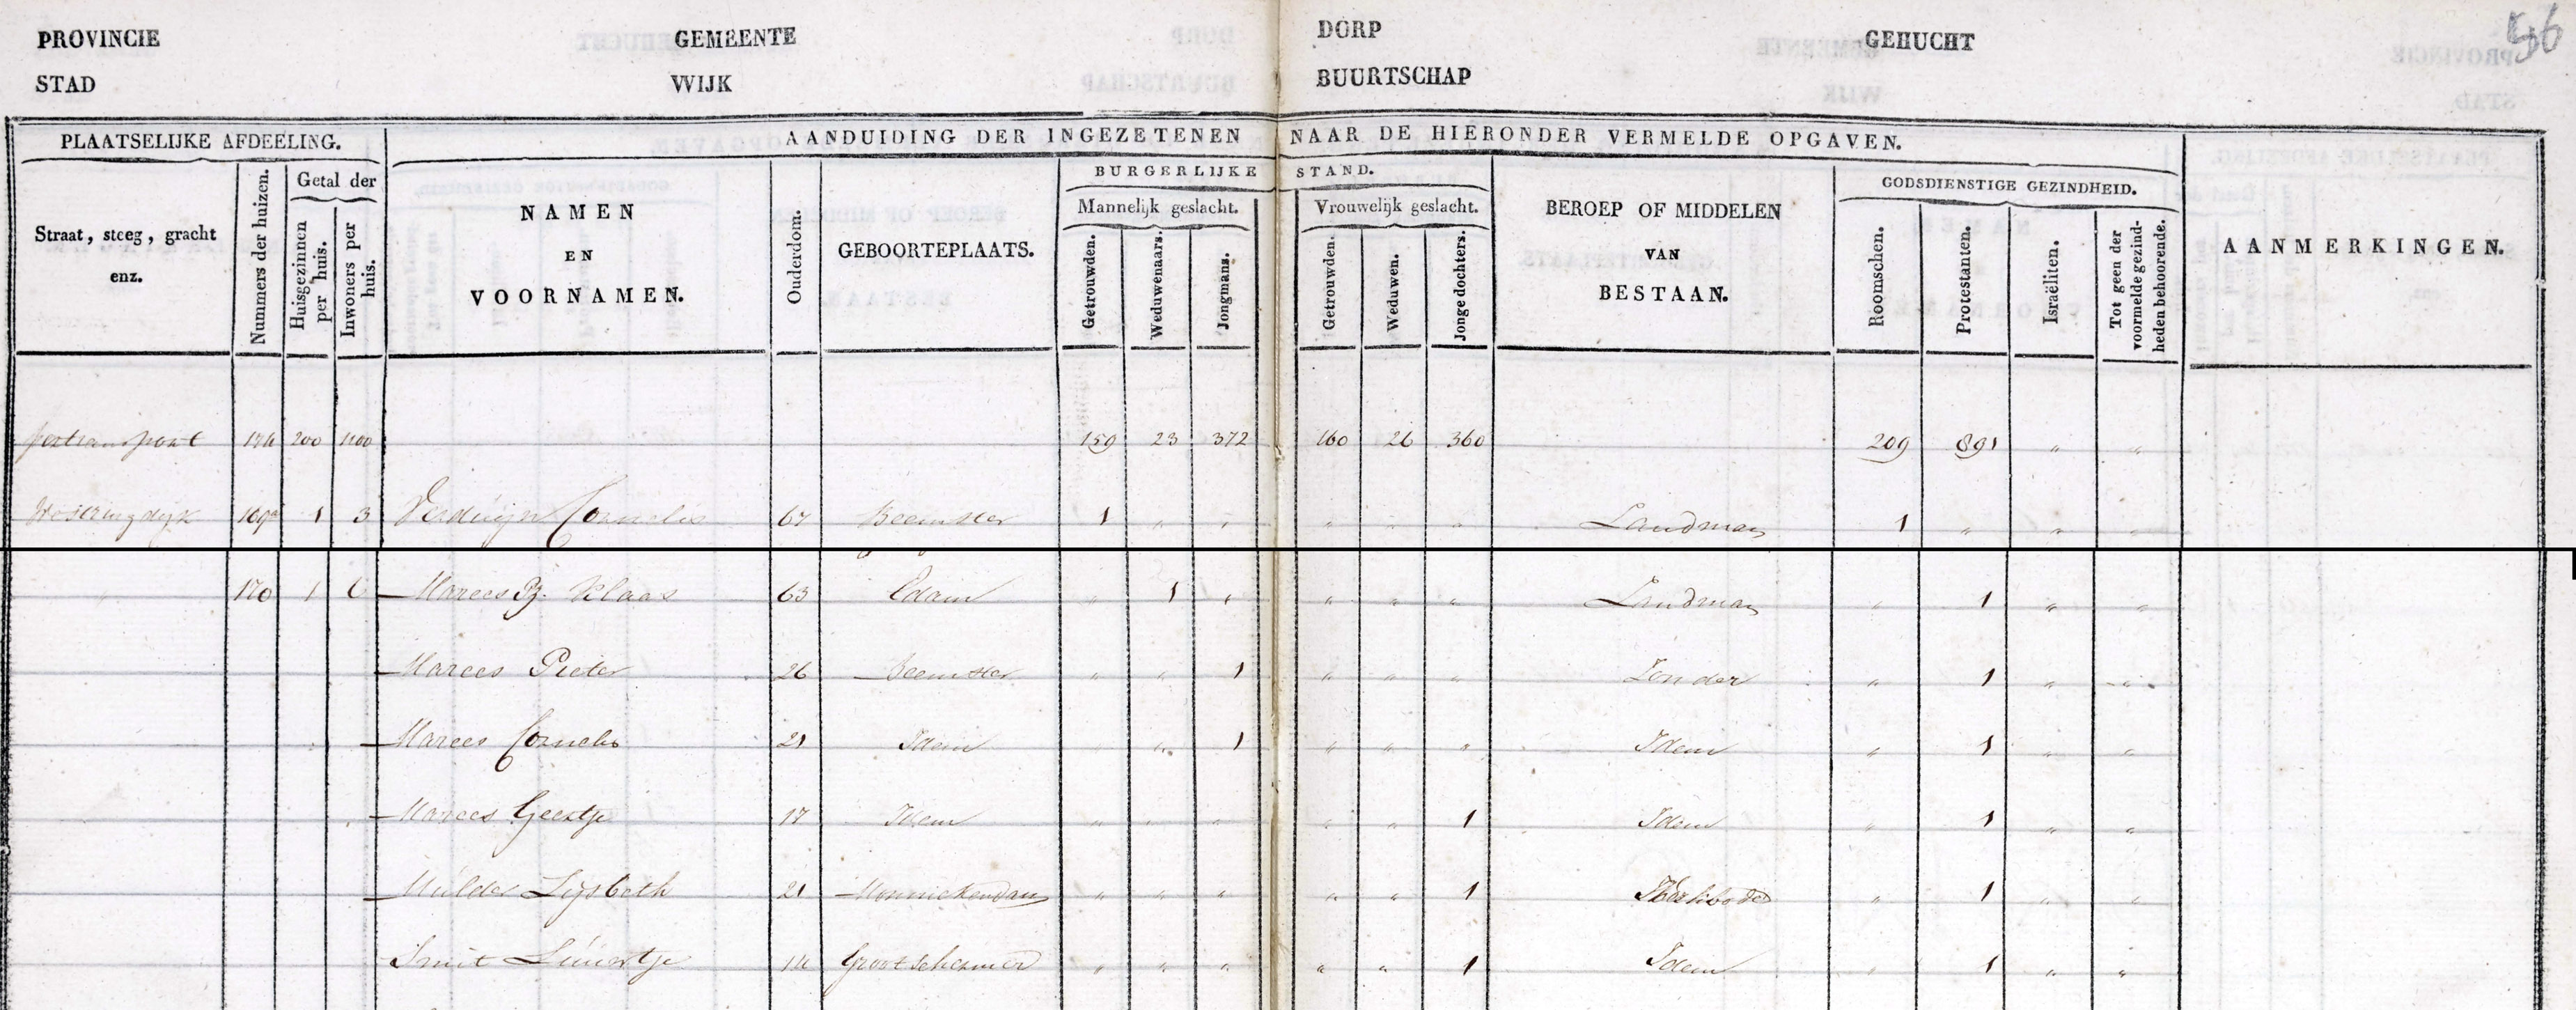 56
PROVINCIE GEMEENTE DORP GEHUCHT
STAD WIJK BUURTSCHAP
PLAATSELIJKE AFDEELING. AANDUIDING DER INGEZETENEN NAAR DE HIERONDER VERMELDE OPGAVEN.
Straat, steeg, gracht enz.
Nummers der huizen.
Getal der
Huisgezinnen per huis.
Inwoners per huis.
NAMEN
EN
VOORNAMEN.
Ouderdom.
GEBOORTEPLAATS.
BURGERLIJKE STAND.
Mannelijk geslacht.
Getrouwden.
Weduwenaars.
Jongmans.
Vrouwelijk geslacht.
Getrouwden.
Weduwen.
Jonge dochters.
BEROEP OF MIDDELEN
VAN
BESTAAN.
GODSDIENSTIGE GEZINDHEID.
Roomschen.
Protestanten.
Israëliten.
Tot geen der voormelde gezindheden behoorende.
AANMERKINGEN.
200 1100 159 23 372 160 26 360 209 891 " "
1 3 Verduijn Cornelis 67 Beemster 1 " " " " " Landman 1 " " "
170 1 6 Marees Pz. Klaas 63 Edam " 1 " " " " Landman " 1 " "
Marees Pieter 26 Beemster " " 1 " " " Zonder " 1 " "
Marees Cornelis 21 Idem " " 1 " " " Idem " 1 " "
Marees Geertje 17 Idem " " " " " 1 Idem " 1 " "
Mulder Lijsbeth 21 Monnickendam " " " " " 1 " 1 " "
Smit 14 Grootschermer " " " " " 1 Idem " 1 " "